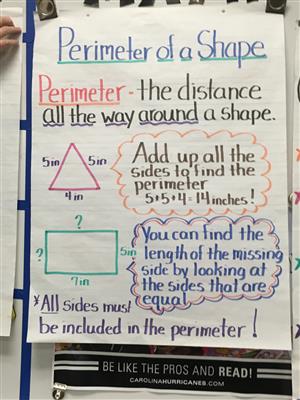 Perimeter of a Shape
Perimeter - the distance
all the way around a shape.
5in 5in
4in
Add up all the
sides to find the
perimeter
5+5+4=14 inches!
?
? 5in
7in
You can find the
length of the missing
side by looking at
the sides that are
equal
*All sides must
be included in the perimeter!
BE LIKE THE PROS AND READ!
CAROLINAHURRICANES.COM